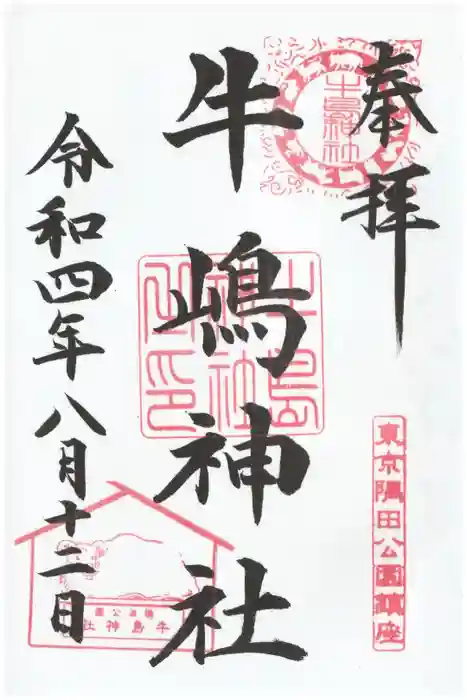 奉拝
東京隅田公園鎮座
牛嶋神社
牛島神社
牛島神社之印
隅田公園
牛島神社
令和四年八月十二日